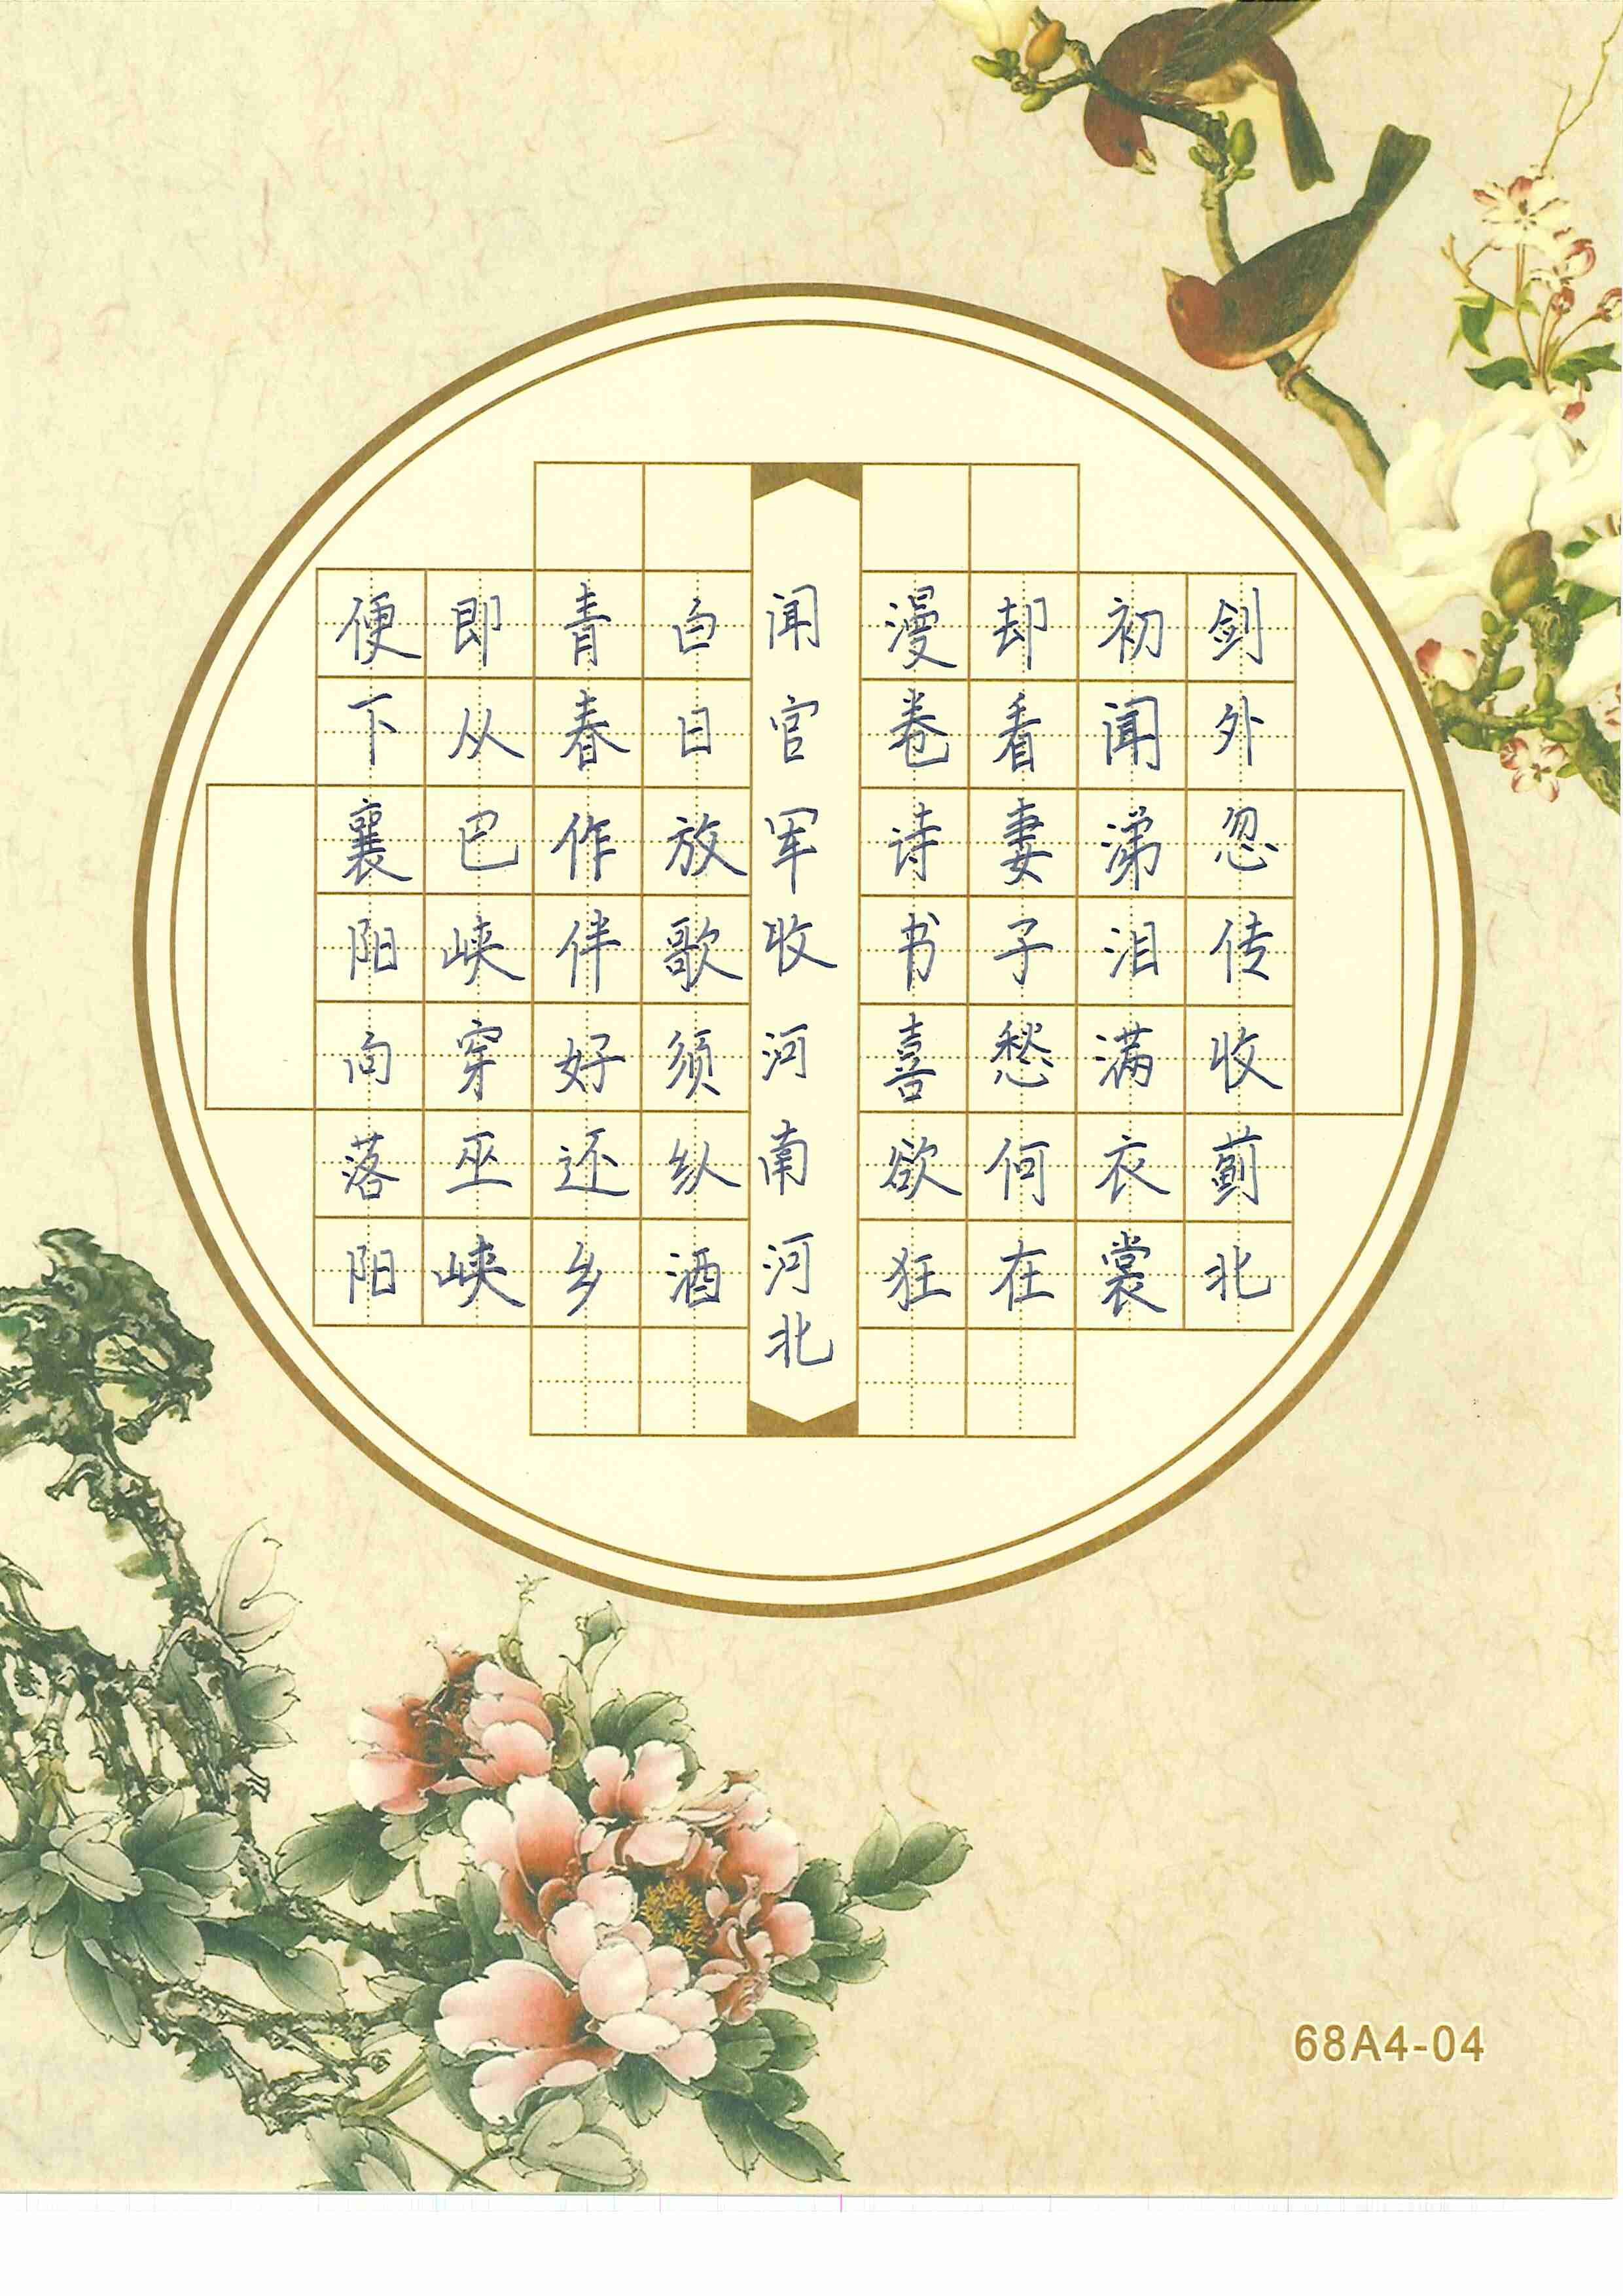 剑外忽传收蓟北
初闻涕泪满衣裳
却看妻子愁何在
漫卷诗书喜欲狂
闻官军收河南河北
白日放歌须纵酒
青春作伴好还乡
即从巴峡穿巫峡
便下襄阳向落阳
68A4-04